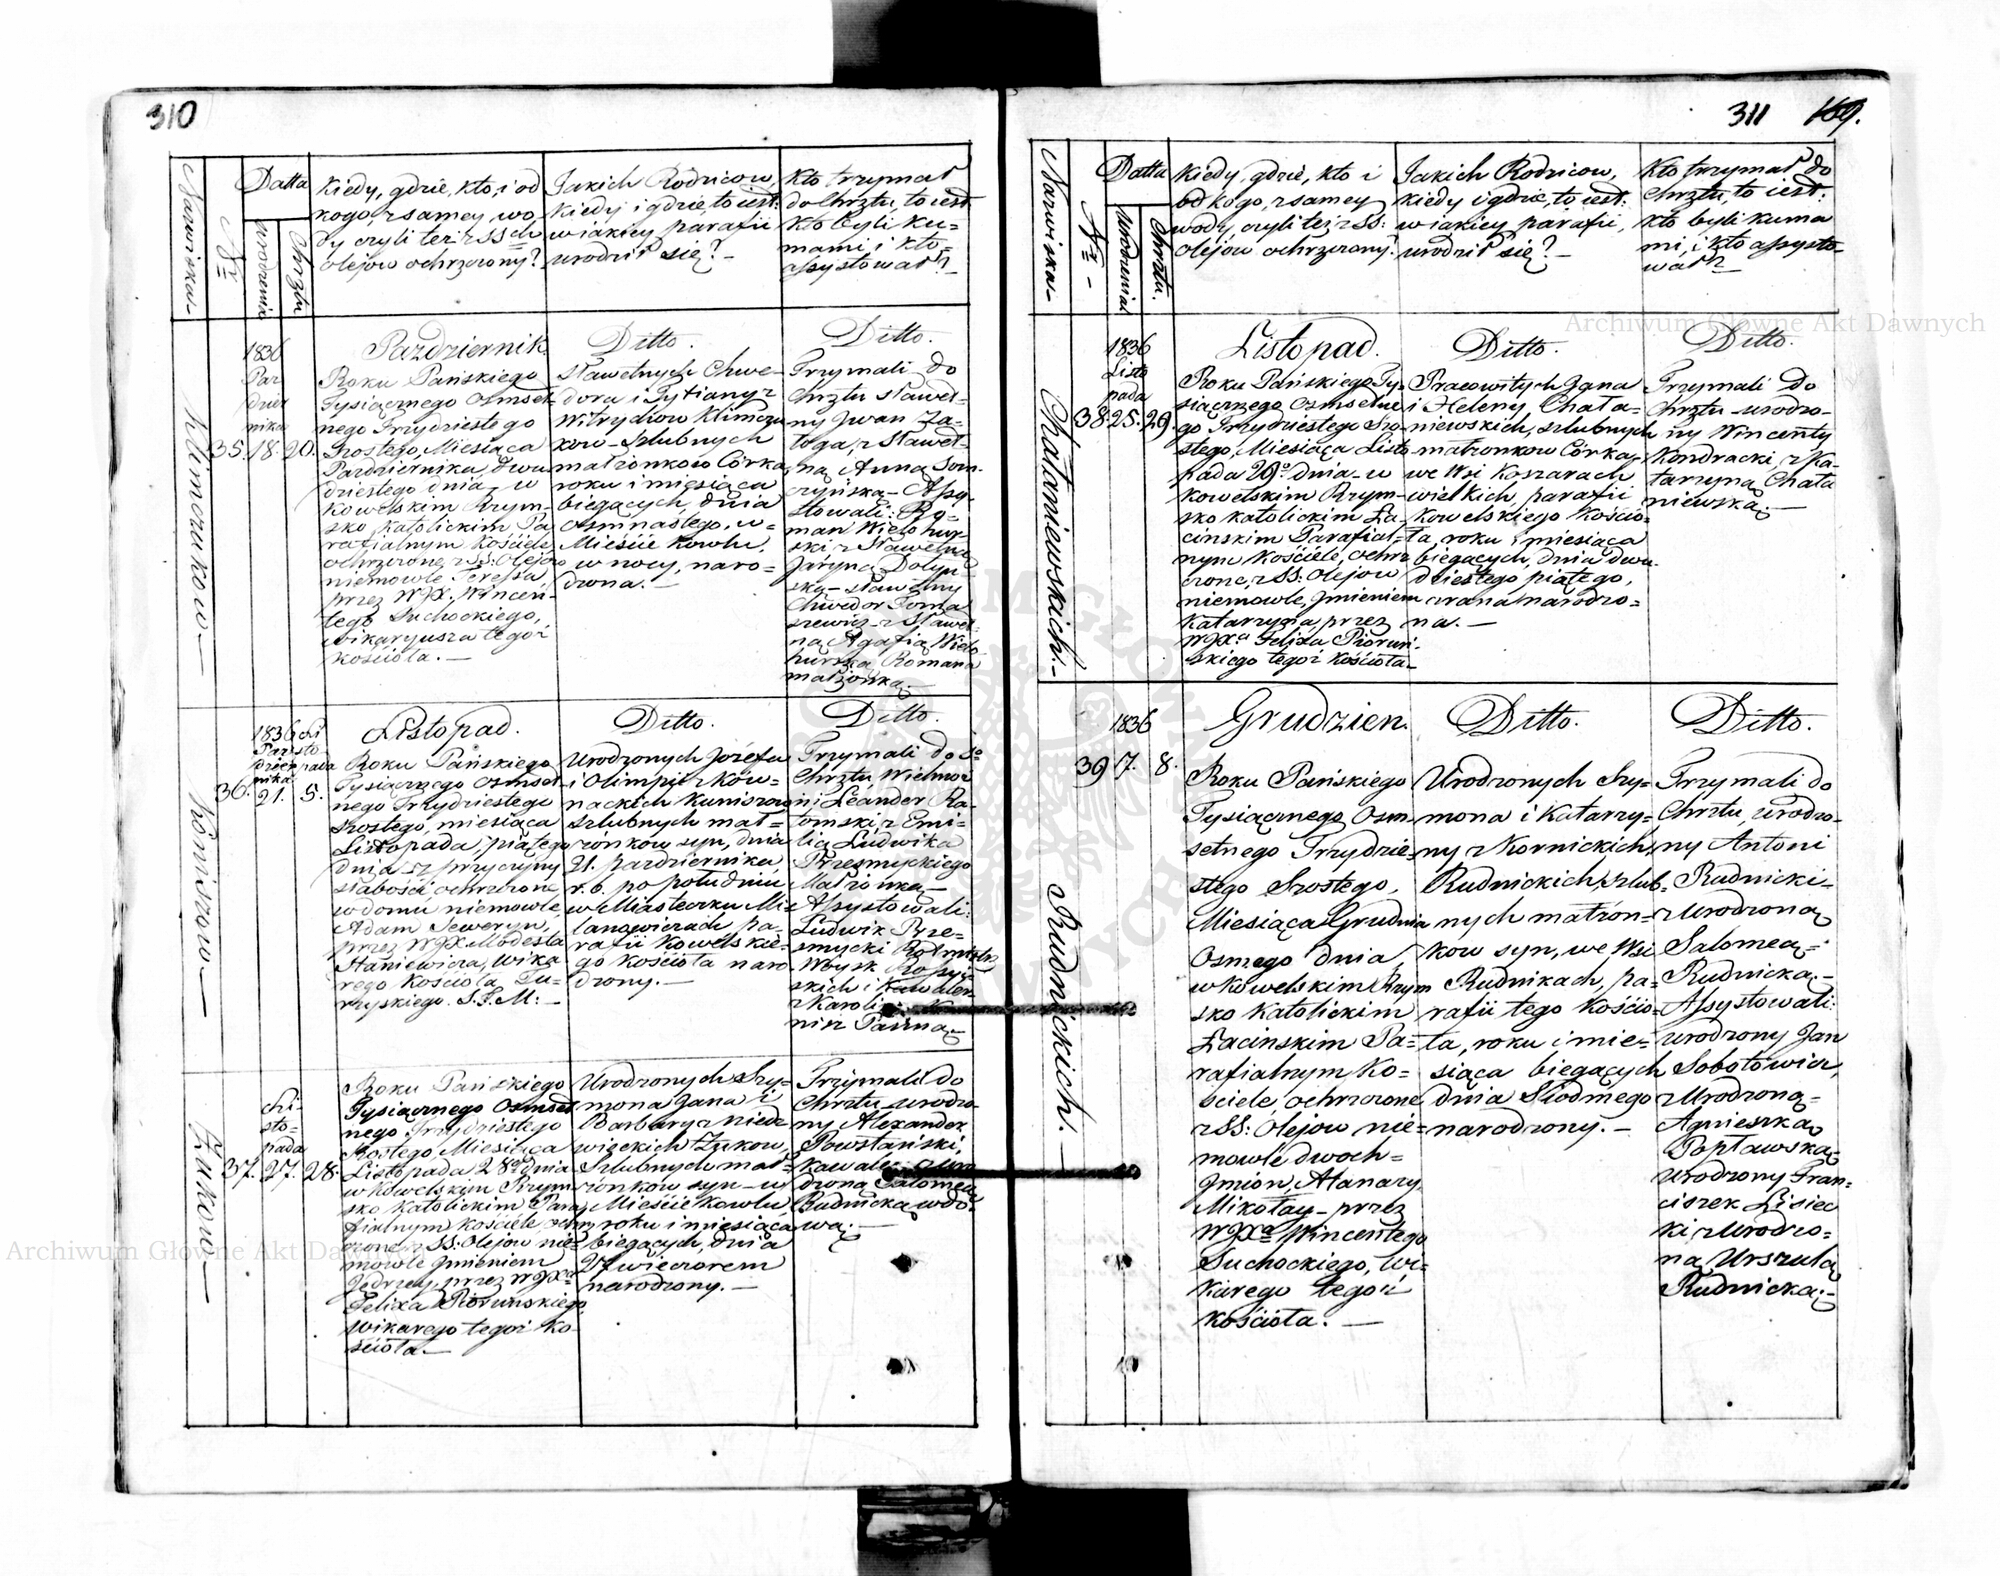 310
Nazwiska
Nr
Datta
Urodzenia
Chrztu
Kiedy, gdzie, kto, i od
kogo, z samey, wo,
dy czyli też z SSch
olejow ochrzczony?
Jakich Rodzicow,
kiedy i gdzie, to iest:
w iakiey parafii
urodził się? –
Kto trzymał
do Chrztu, to iest
kto byli ku=
mami, i kto =
assystował? –
Klimczukow –
1836
Paz
dzier
nika
35. 18. 20.
Pazdziernik
Roku Pańskiego
Tysiącznego Osmset-
nego Trzydziestego
Szostego, Miesiąca
Pazdziernika, dwu
dziestego dnia, w
Kowelskim Rzym=
sko Katolickim Pa
rafialnym Kościele
ochrzczone, z SS: Olejow
niemowle Teressa,
przez WJX. Wincen-
tego Suchockiego,
wikaryusza tegoż
Kościoła. –
Ditto.
Sławetnych Chwe-
dora i Tytiany z
Witrydiow Klimczu
kow – szlubnych
małżonkow Córka
roku i miesiąca
biegących, dnia
osmnastego, w =
Mieście Kowlu,
w nocy, naro=
dzona. –
Ditto.
Trzymali do
Chrztu Sławet-
ny Jwan Za-
łoga, z Sławet-
ną Anną Som-
czyńską – Assy-
stowali: Ro=
man Wielohur-
ski z Sławetną
Jaryną Dolyn-
ską – Sławetny
Chwedor Toma
szewicz – z Sławet-
ną Agafią Wielo
hurską Romana
małżonką. –
Koniszow –
1836
Pazdzier
nika
Listo
pada
36. 21. 5.
Listopad.
Roku Pańskiego
Tysiącznego Osmset-
nego Trzydziestego
szostego, miesiąca
Listopada, piątego
dnia – z przyczyny
słabości ochrzczone
w domu niemowle,
Adam Seweryn,
przez WJX. Modesta
Staniewicza, wika
rego Kościoła Tu-
rzyskiego. S.T.M: –
Ditto.
Urodzonych Jozefa
i Olimpii z Kow=
nackich Kuniszow
szlubnych mał=
żonkow syn, dnia
21. pazdziernika
r. b. po południu
w Miasteczku Mi=
lanowiczach, pa-
rafii Kowelskie-
go Kościoła naro
dzony. –
Ditto.
Trzymali do So
Chrztu, Wielmoż
ni Leander Ra-
tomski, z Emi-
lią Ludwika
Przesmyckiego
Małżonką. –
Assystowali:
Ludwik Prze=
smycki Rotmistrz
Woysk Rossyi-
skich i Kawaler
z Karoli
nisz Panną. –
Żukow –
Li-
sto-
pada
37. 27. 28.
Roku Pańskiego
Tysiącznego Osmset
nego Trzydziestego
Szostego, Miesiąca
Listopada 28o dnia
w Kowelskim Rzym
sko Katolickim Para
fialnym Kościele ochrz
czone, z SS: Olejow nie=
mowle Jmieniem
Jędrzey, przez WJXa
Felixa Piorunskiego
wikarego tegoż Ko-
ścioła. –
Urodzonych Szy=
mona Jana i
Barbary z Niedz-
wieckich Żukow,
Szlubnych mał=
żonkow syn – w
Mieście Kowlu,
roku i miesiąca
biegących, dnia
27. wieczorem
narodzony. –
Trzymali do
Chrztu urodzo-
ny Alexander
Powstański,
Kawaler z Uro
dzoną Salomeą
Rudnicką wdo-
wą. –
311 169.
Nazwiska –
Nr –
Datta
Urodzenia
Chrztu.
Kiedy, gdzie, kto i
od kogo, z samey
wody, czyli też z SS:
olejow ochrzczony?
Jakich Rodzicow,
kiedy i gdzie, to iest:
w iakiey parafii,
urodził się? –
Kto trzymał do
Chrztu, to iest:
kto byli kuma
mi, i kto assysto-
wał? –
Chałaniewskich. –
1836
Listo
pada
38. 25. 29.
Listopad.
Roku Pańskiego Ty-
siącznego Osmsetne
go Trzydziestego Szo-
stego, Miesiąca Listo
pada 29o dnia – w
Kowelskim Rzym=
sko Katolickim Ła-
cinskim Parafial=
nym Kościele, ochrz
czone, z SS: Olejow
niemowle, Jmieniem
Katarzyna, przez
WJXa Felixa Piorun-
skiego tegoż Kościoła –
Ditto.
Pracowitych Jana
i Heleny, Chała-
niewskich, szlubnych
małżonkow Córka,
we Wsi Koszarach
wielkich, parafii
Kowelskiego Kościo-
ła, roku i miesiąca
biegących, dnia dwu-
dziestego piątego,
zrana narodzo=
na. –
Ditto.
Trzymali do
Chrztu – urodzo-
ny Wincenty
Kondracki, z Ka-
tarzyną Chała
niewską. –
Rudnickich. –
1836
39 7. 8.
Grudzien.
Roku Pańskiego
Tysiącznego Osm=
setnego Trzydzie=
stego Szostego,
Miesiąca Grudnia
Osmego dnia,
w Kowelskim Rzym
sko Katolickim
Łacinskim Pa=
rafialnym Ko=
ściele, ochrzczone
z SS: Olejow nie=
mowle dwoch=
Jmion, Atanazy
Mikołay – przez
WJXa Wincentego
Suchockiego, Wi-
karego tegoż
Kościoła. –
Ditto.
Urodzonych Szy=
mona i Katarzy=
ny z Kornickich=
Rudnickich, szlub=
nych małżon=
kow syn, we Wsi
Rudnikach, pa=
rafii tego Kościo=
ła, roku i mie=
siąca biegących
dnia Siodmego
narodzony. –
Ditto.
Trzymali do
Chrztu, urodzo-
ny Antoni
Rudnicki –
z Urodzoną
Salomeą =
Rudnicką. –
Assystowali:
urodzony Jan
Sobotowicz,
z Urodzoną =
Agnieszką
Popławską –
urodzony Fran=
ciszek Lisiec
ki, z Urodzo=
ną Urszulą
Rudnicką. –
Archiwum Główne Akt Dawnych
Archiwum Główne Akt Dawnych